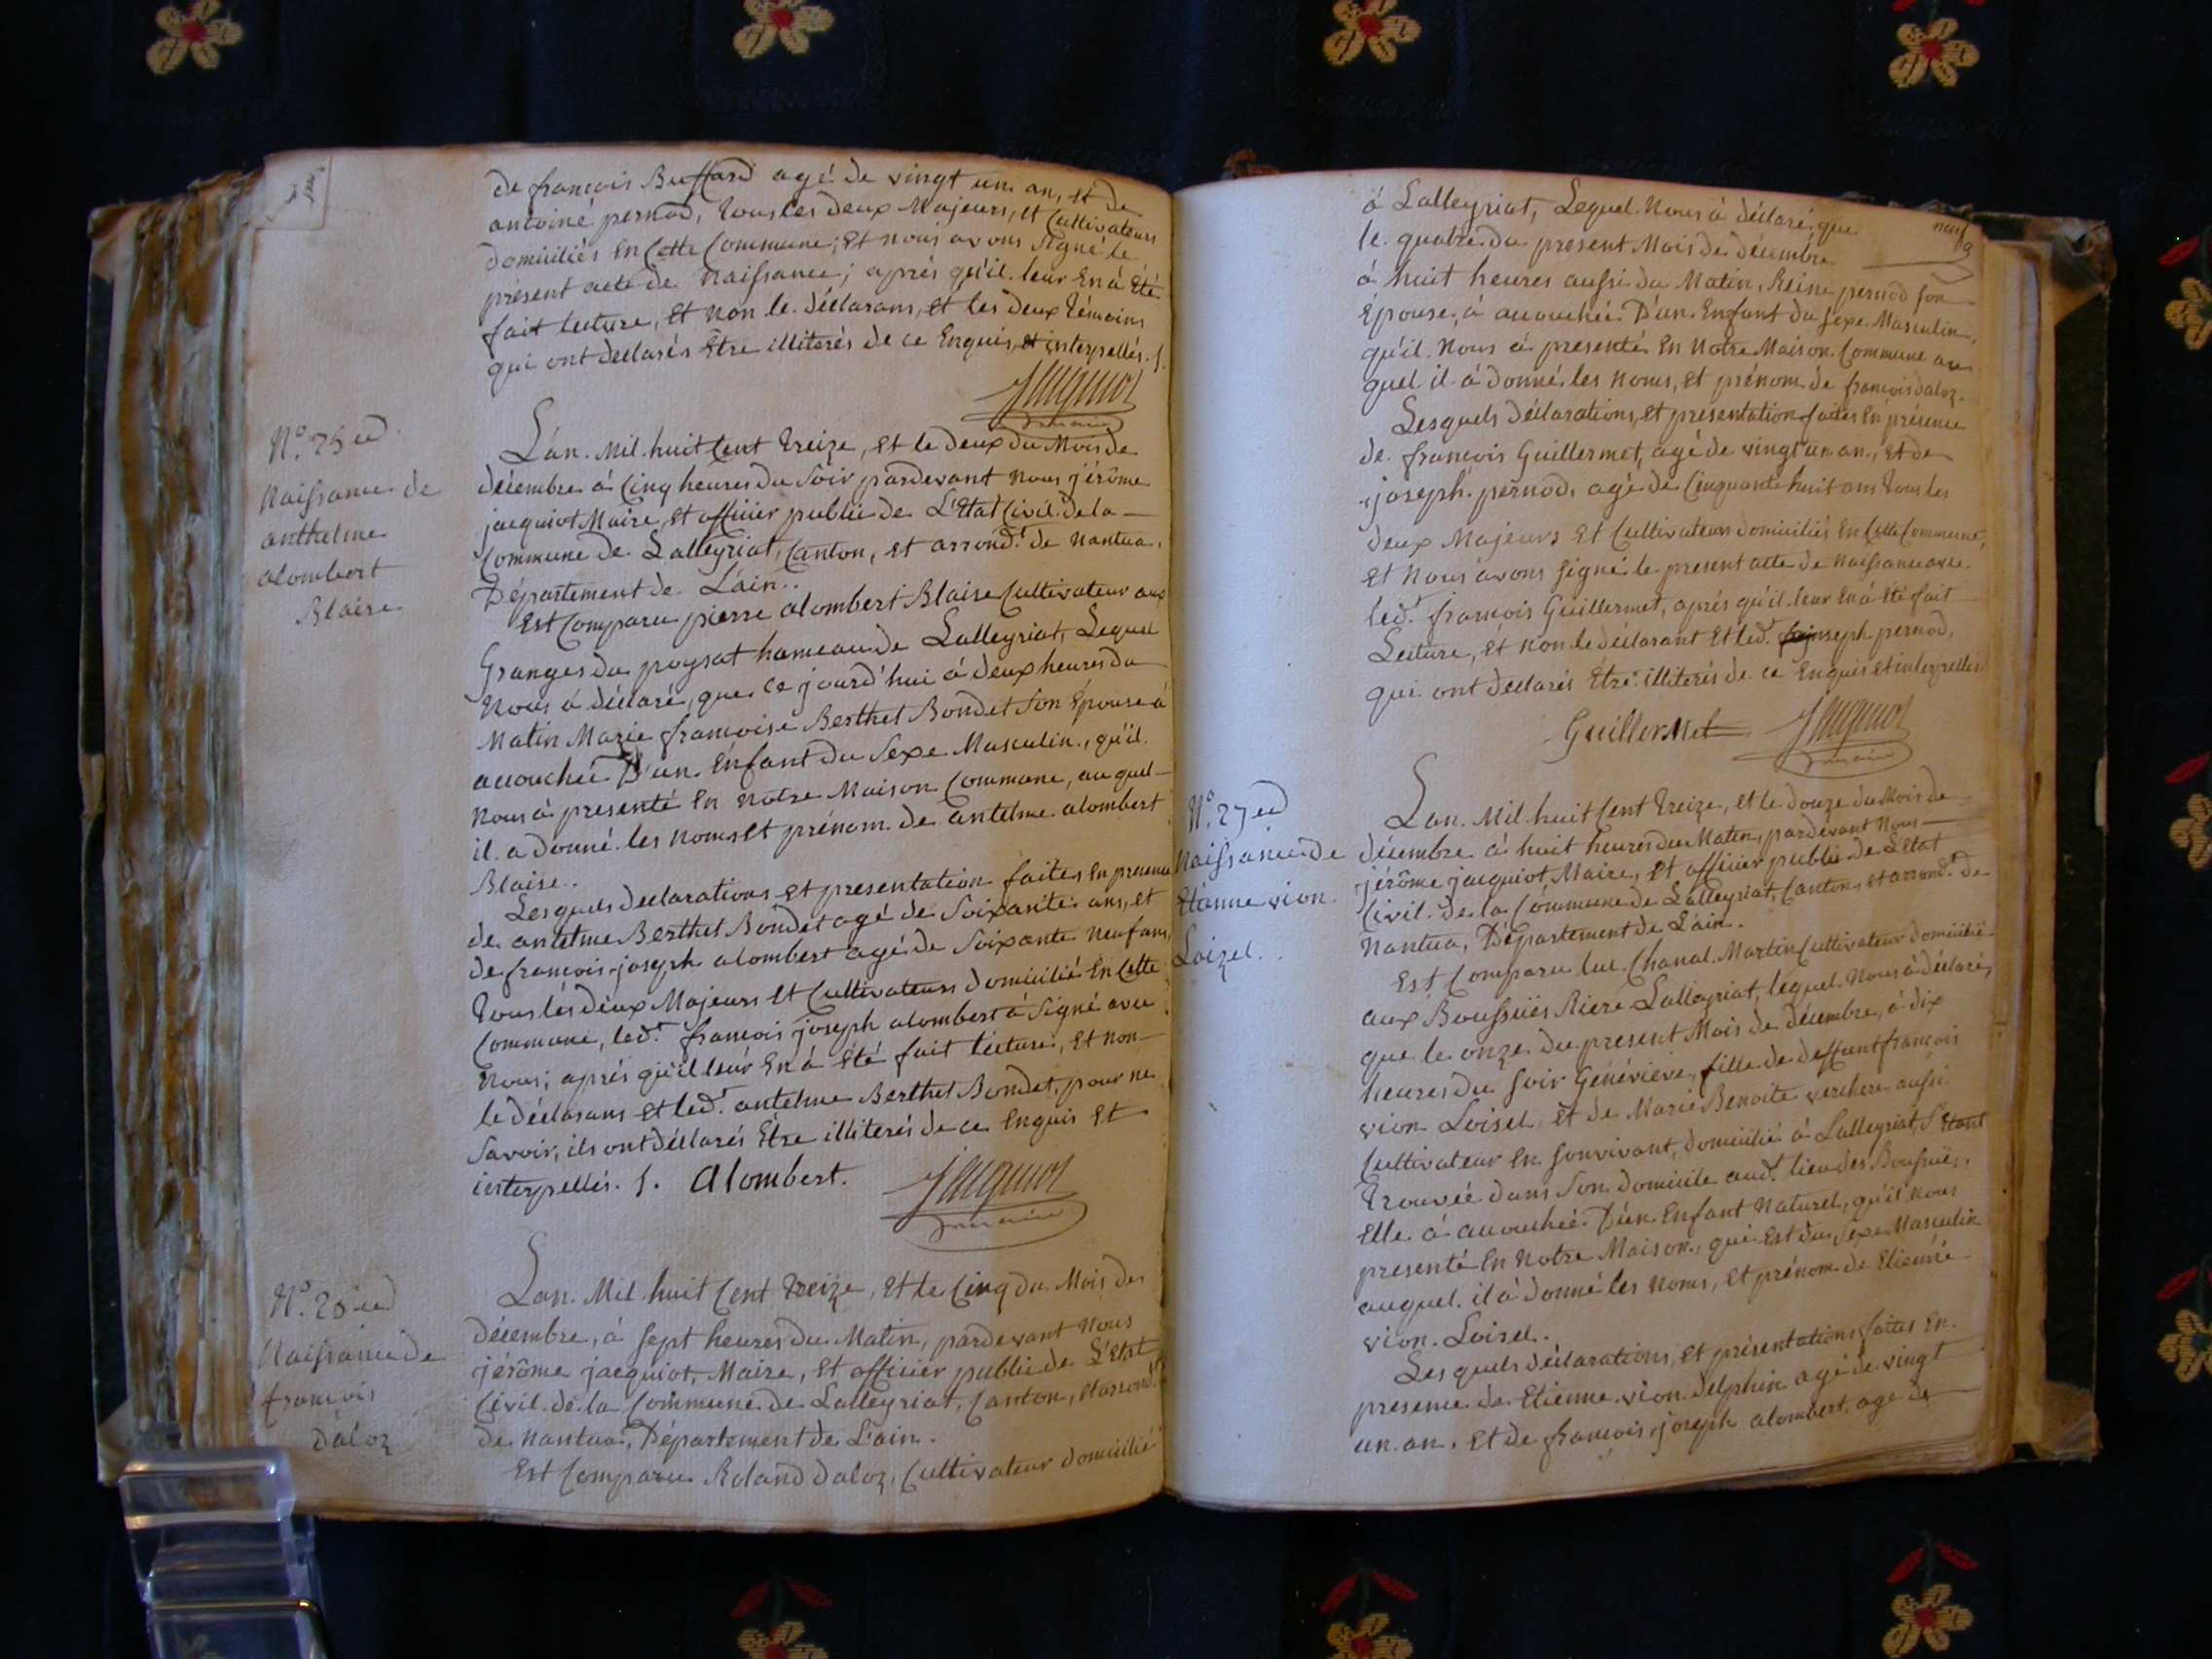 de françois Buffard agé de vingt un an, et de
antoine pernod, tous les deux Majeurs, et Cultivateurs
domiciliés en Cette Commune; Et nous avons signé le
présent acte de Naissance; aprés qu'il leur en à Été
fait lecture, et non le déclarans, et les deux témoins
qui ont declarés Être illiterés de ce Enquis, et interpellés.
Jacquiot
maire
N.o 25
Naissance de
anthelme
alombert
Blaise
L'an Mil huit Cent treize, et le deux du Mois de
décembre à Cinq heures du Soir pardevant nous jérôme
jacquiot Maire, et officier public de L'Etat Civil de la
Commune de Lalleyriat, Canton, et arrond.t de Nantua,
Département de L'ain..
Est Comparu pierre alombert Blaise Cultivateur aux
Granges du poysat hameau de Lalleyriat, Lequel
Nous à déclaré, que ce jourd'hui à deux heures du
Matin Marie françoise Berthet Bondet Son Épouse à
accouchée D'un Enfant du Sexe Masculin, qu'il
nous à presenté en notre Maison Commune, auquel
il a donné les noms et prénom de antelme alombert
Blaise..
Lesquels declarations et presentation faites en presence
de antelme Berthet Bondet agé de Soixante ans, et
de françois joseph alombert agé de Soixante neuf ans,
tous les deux Majeurs et Cultivateurs domicilié en Cette
Commune, led.t françois joseph alombert à Signé avec
Nous; aprés qu'il leur en à été fait lecture, et non
le déclarans et led.t antelme Berthet Bondet, pour ne
Savoir, ils ont déclarés Être illiterés de ce enquis et
interpellés. Alombert.
Jacquiot
maire
N.o 26
Naissance de
françois
daloz
L'an Mil huit Cent treize, et le Cinq du Mois de
décembre, à Sept heures du Matin, pardevant nous
jérôme jacquiot, Maire, et officier public de L'Etat
Civil de la Commune de Lalleyriat, Canton, et arrond.t
de nantua, Département de L'ain.
Est Comparu Roland daloz, Cultivateur domicilié
neuf
9
à Lalleyriat, Lequel Nous à déclaré que
le quatre du present Mois de décembre
à huit heures aussi du Matin, Reine pernod Son
Épouse, à accouchée D'un Enfant du Sexe Masculin,
qu'il Nous à presenté en Notre Maison Commune au
quel il à donné les noms, et prénom de françois daloz.
Lesquels déclarations, et presentation faites en présence
de françois Guillermet, agé de vingt un an, et de
joseph pernod, agé de Cinquante huit ans tous les
deux Majeurs et Cultivateurs domiciliés en Cette Commune,
et Nous avons signé le present acte de naissance avec
led.t françois Guillermet, aprés qu'il leur en à été fait
Lecture, et non le déclarant et led.t joseph pernod,
qui ont declarés Être illiterés de ce enquis et interpellés.
Guillermet Jacquiot
maire
N.o 27
Naissance de
Etienne vion
Loizel..
L'an Mil huit Cent treize, et le douze du Mois de
décembre à huit heures du Matin, pardevant nous
jérôme jacquiot Maire, et officier public de L'Etat
Civil de la Commune de Lalleyriat, Canton, et arrond.t de
Nantua, Département de L'ain.
Est Comparu luc Chanal Martin Cultivateur domicilié
aux Boussuës Riere Lalleyriat, lequel Nous à déclaré,
que le onze du present Mois de décembre, à dix
heures du Soir Généviéve, fille de deffunt françois
vion Loisel, et de Marie Benoite verchere aussi
Cultivateur en Son vivant, domicilié à Lalleyriat, S'étant
trouvée dans Son domicile aud.t lieu des Boussuës,
Elle à accouchée D'un Enfant Naturel, qu'il nous
presenté en Notre Maison, qui est du Sexe Masculin
auquel il à donné les Noms, et prénom de Etienne
vion Loisel.
Lesquels déclarations, et présentations faites en
presence de Etienne vion delphin agé de vingt
un an, et de françois joseph alombert, agé de